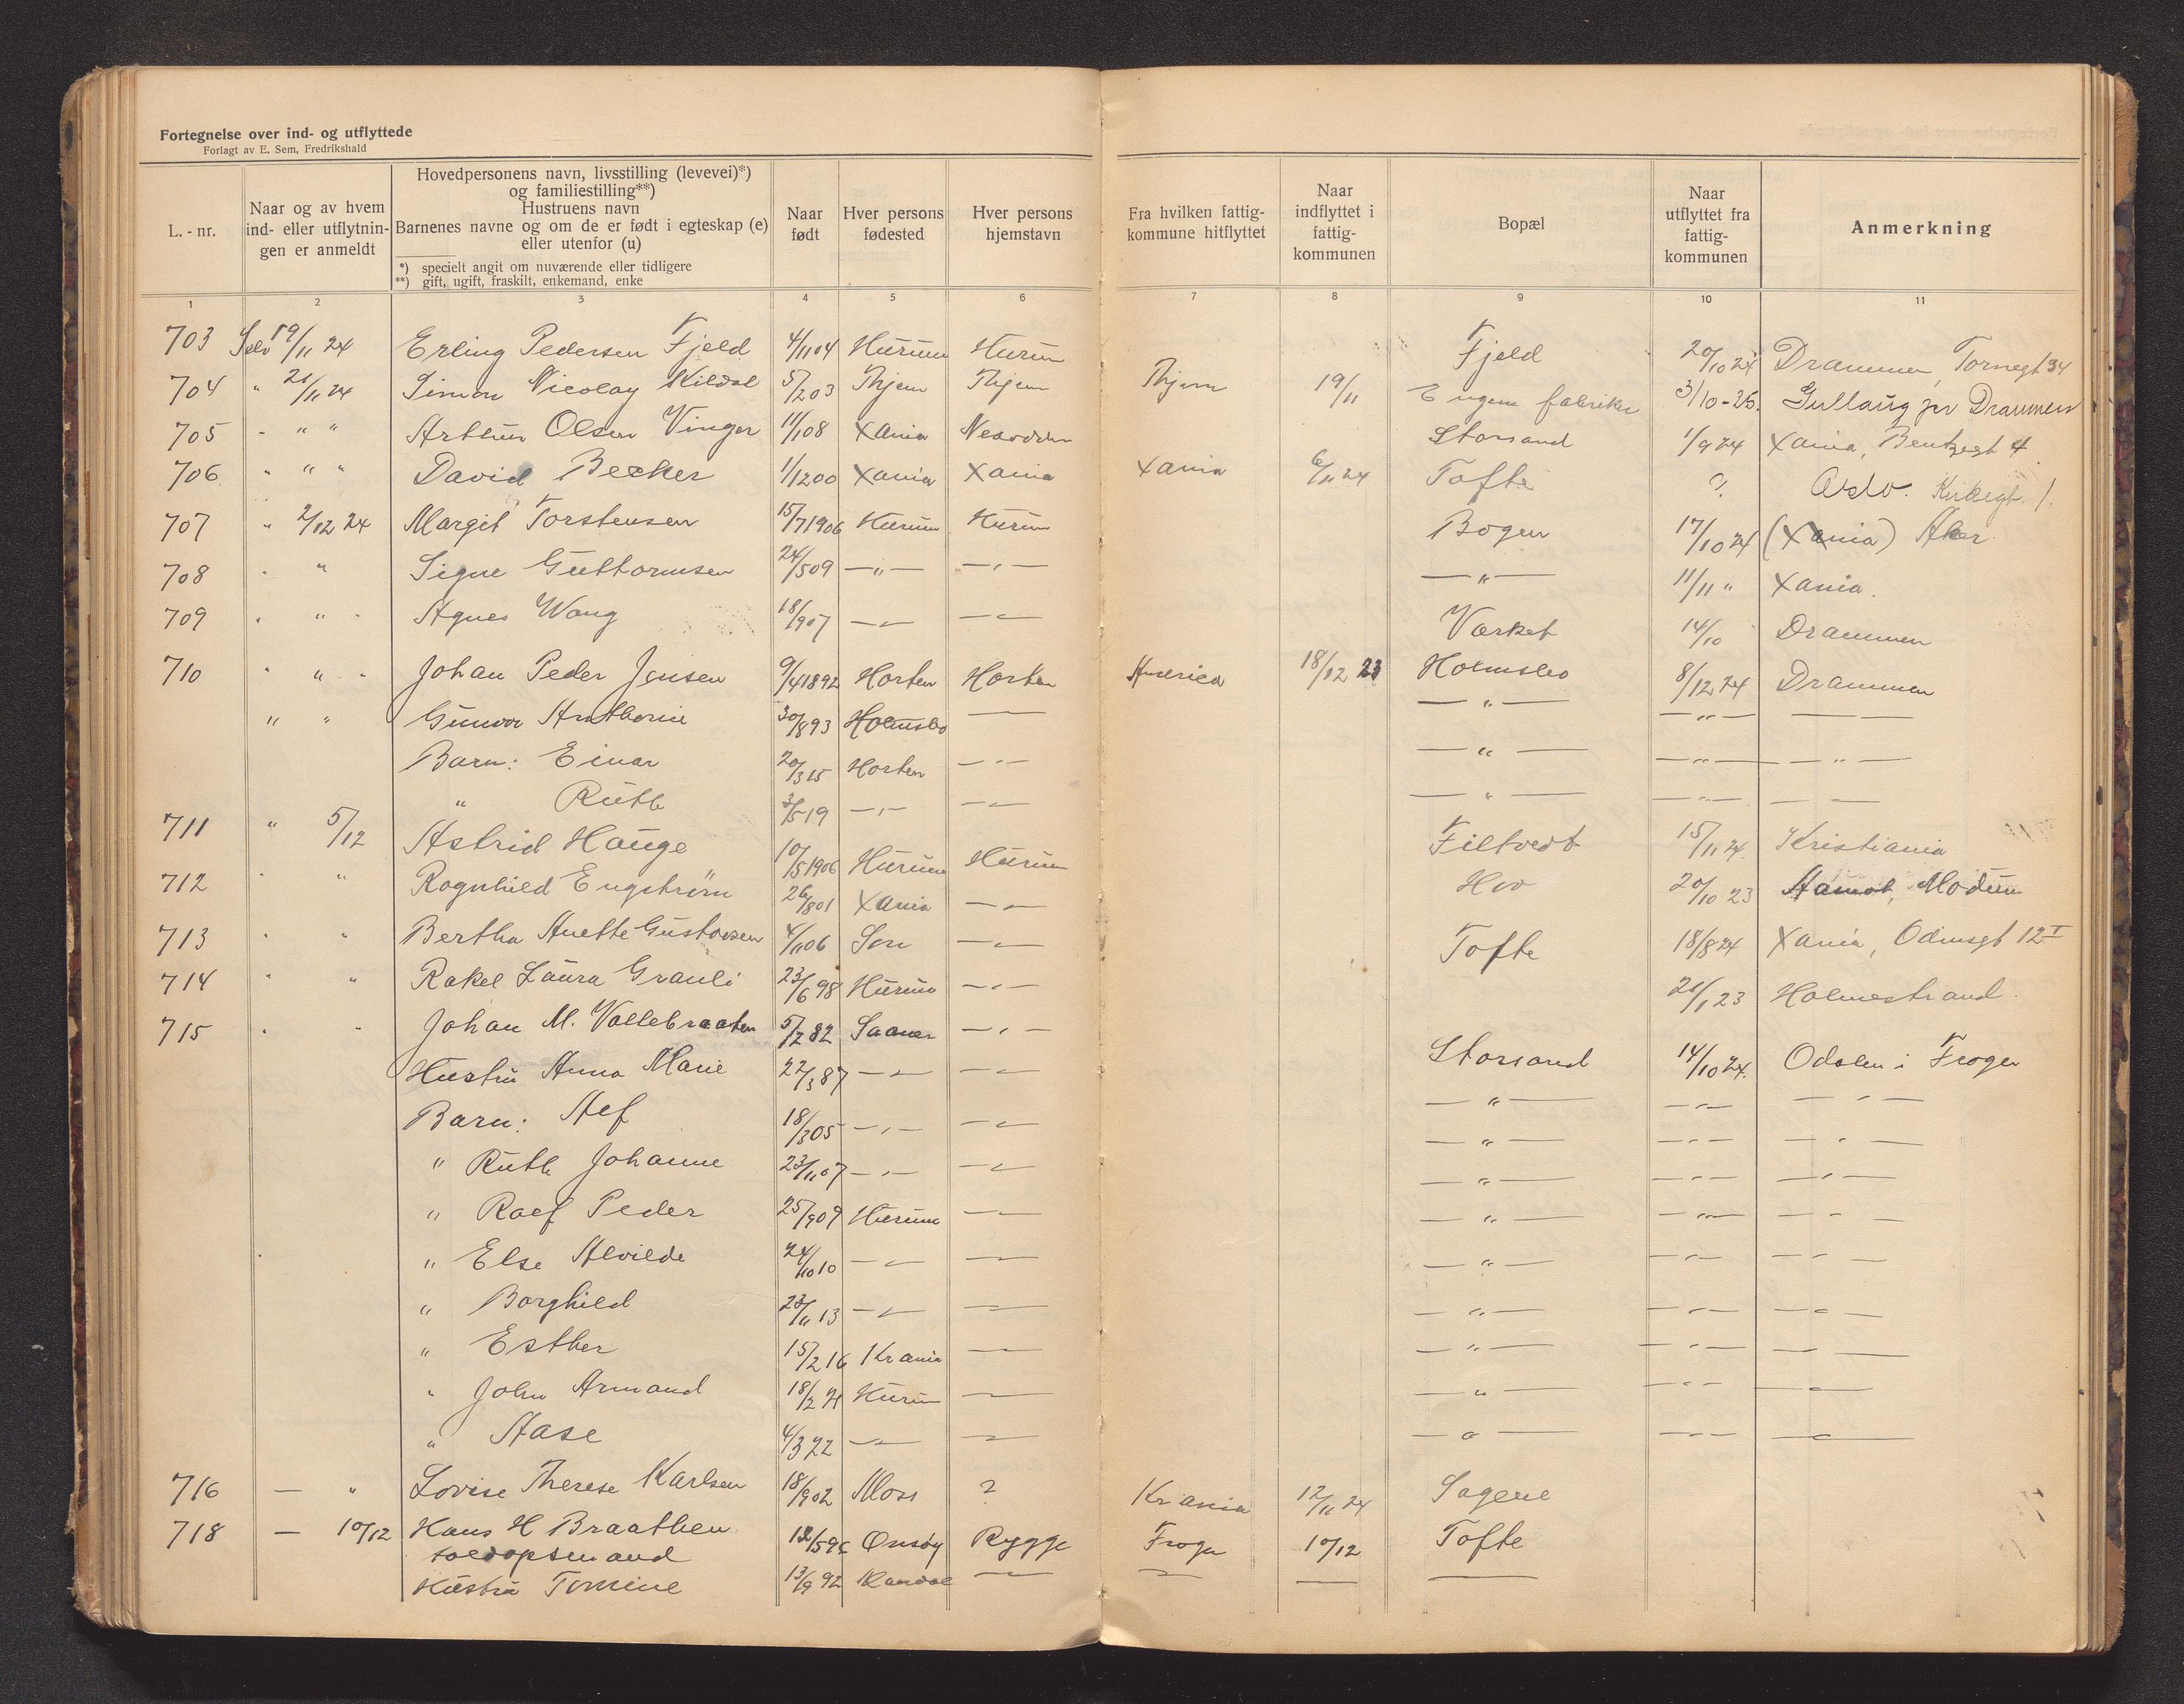 Fortegnelse over ind- og utflyttede
Forlagt av E. Sem, Fredrikshald
L.-nr.
Naar og av hvem ind- eller utflytningen er anmeldt
Hovedpersonens navn, livsstilling (levevei)*) og familiestilling**)
Hustruens navn
Barnenes navne og om de er født i egteskap (e) eller utenfor (u)
*) specielt angit om nuværende eller tidligere
**) gift, ugift, fraskilt, enkemand, enke
Naar født
Hver persons fødested
Hver persons hjemstavn
Fra hvilken fattigkommune hitflyttet
Naar indflyttet i fattigkommunen
Bopæl
Naar utflyttet fra fattigkommunen
Anmerkning
1 2 3 4 5 6 7 8 9 10 11
703 Selv 19/11 24 Erling Pedersen Fjeld 4/11 04 Hurum Hurum Fjeld 20/10 24 Drammen, Tornegt 34
704 " 21/11 24 Simon Nicolay Kildal 5/2 03 19/11 Engene fabriker 3/10-25. Gullaug pr Drammen
705 - " " Arthur Olsen Vinger 11/1 08 Xania Nesodden Storsand 1/9 24 Xania, Bentzegt 4
706 " " " David Becker 1/12 00 Xania Xania Xania 6/11 24 Tofte ? Oslo. Kirkegt. 1.
707 " 2/12 24 Margit Torstensen 15/7 1906 Hurum Hurum Bogen 17/10 24 (Xania) Aker
708 " " Signe Guttormsen 24/5 09 —"— —"— —"— 11/11 " Xania.
709 " " " Agnes Wang 18/9 07 —"— —"— Værket 14/10 Drammen
710 " " " Johan Peder Jensen 9/4 1892 Horten Horten America 18/12 23 Holmsbo 8/12 24 Drammen
" " Gunvor Anthonie 30/8 93 Holmsbo — —"— —"— — —
Barn: Einar 20/3 15 Horten —"— —"— —"— —"—
" Ruth 3/5 19 —"— —"— —"— —"— — —
711 " 5/12 Astrid Hauge 10/5 1906 Hurum Hurum Filtvedt 15/11 24. Kristiania
712 " " Ragnhild Engstrøm 26/8 01 Xania —"— Hvo 20/10 23 Aamot, Modum
713 " " Bertha Anette Gustavsen 4/11 06 Son —"— Tofte 18/8 24 Xania, Odinsgt 12 I
714 " " Rakel Laura Granli 23/6 98 Hurum —"— 21/1 23 Holmestrand.
715 " " Johan M. Vallebraaten 5/2 82 Saaner —"— Storsand 14/10 24. Odalen i Frogn
Hustru Anna Marie 22/3 87 —"— —"— —"— —"— —"—
Barn: Alf 18/3 05 —"— —"— —"— —"— —"—
" Ruth Johanne 23/11 07 —"— —"— —"— —"— —"—
" Ralf Peder 25/9 09 Hurum — —"— —"— —"—
" Else Alvilde 24/10 10 —"— — —"— —"— —"—
" Borghild 23/11 13 —"— — —"— —"— —"—
" Esther 15/2 16 Krania — —"— —"— —
" John Armand 18/2 21 Hurum — —"— —"— —"—
" Aase 4/3 22 — — —"— —"— —"—
716 — " Lovise Therese Karlsen 18/9 02 Moss ? Krania 12/11 24 Sagene
718 — 10/12 Hans H Braathen Onsøy Rygge Frogn 10/12 Tofte
toldopsmand
Hustru Tomine 13/9 92 — — — —